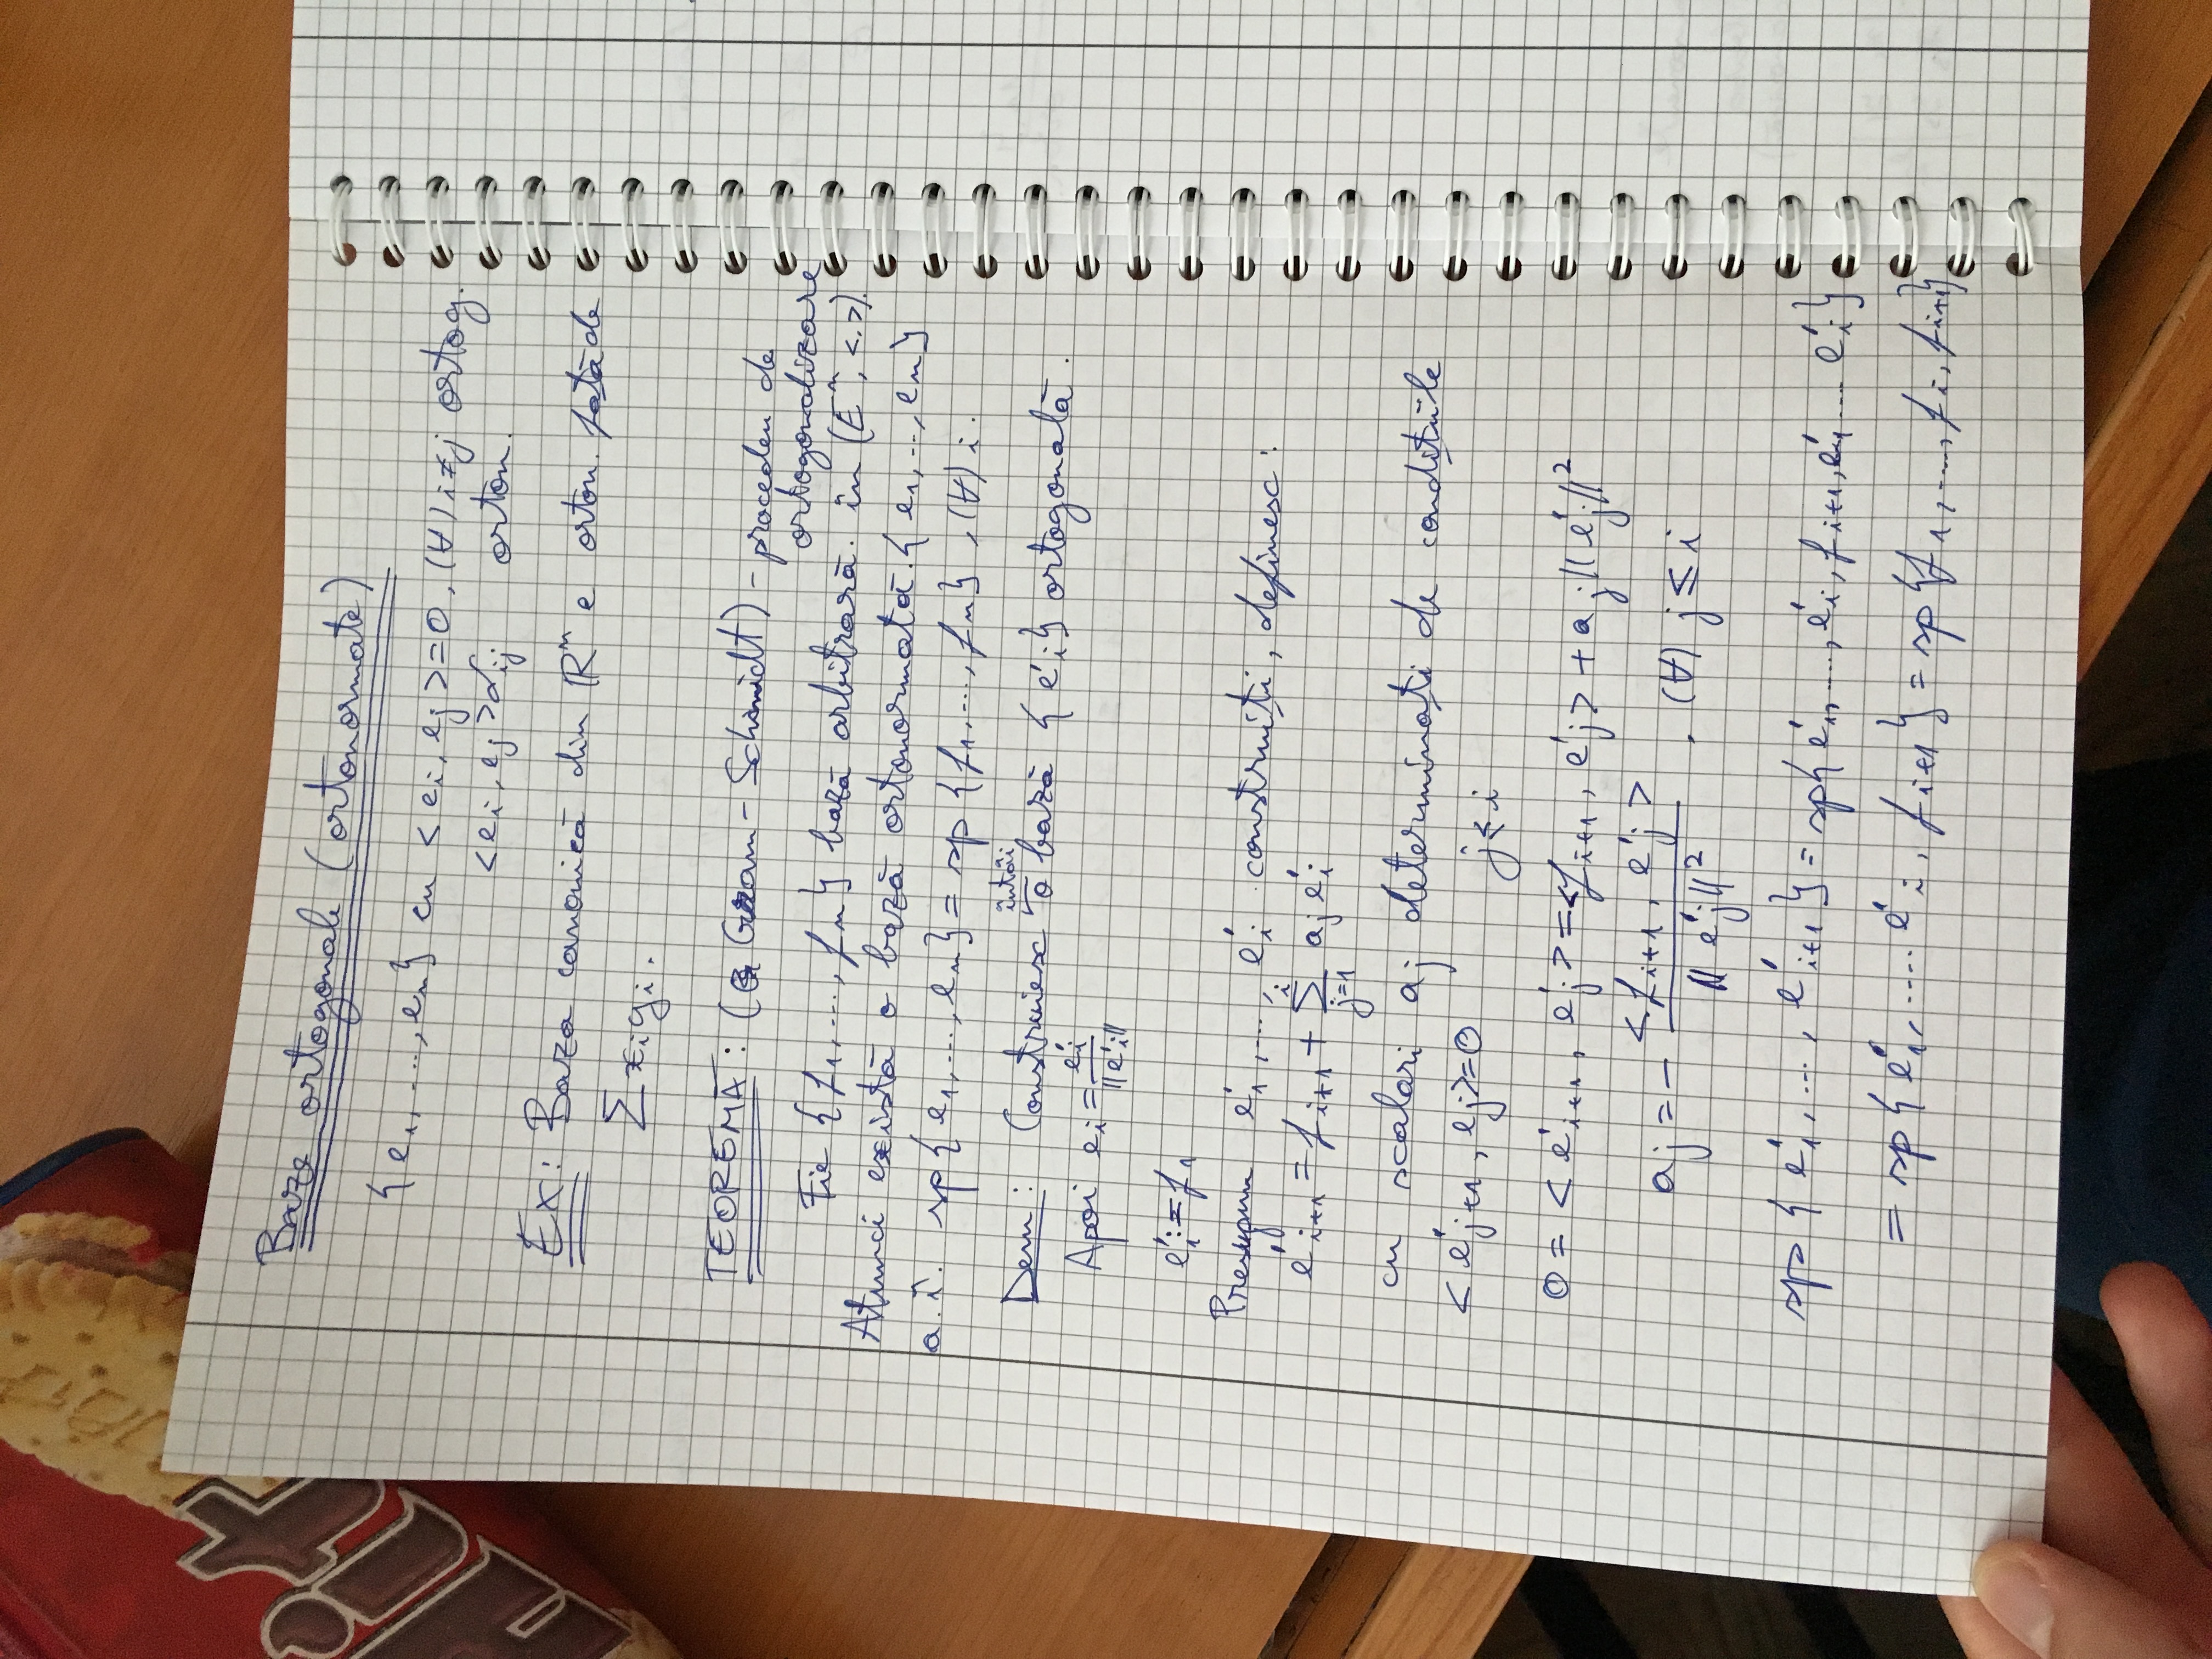 Baze ortogonale (ortonormate)
{e1,...,en} cu <ei,ej>=0, (∀)i≠j ortog.
<ei,ej>δij orton.
EX: Baza canonică din Rⁿ e orton. față de
∑xiyi.
TEOREMĂ: (Gram-Schimidt) - procedeu de
ortogonalizare
Fie {f1,...,fn} bază arbitrară. în (Eⁿ,<,>).
Atunci există o bază ortonormată. {e1,...,en}
a.î. sp{e1,...,en}=sp{f1,...,fn}, (∀)i.
Dem: Construiesc întâi o bază {e'i} ortogonală.
Apoi ei = e'i / ||e'i||
e'1:=f1
Presupun e'1,...,e'i construiți, definesc:
e'i+1 = fi+1 + ∑ʲ⁼¹ⁱ aj e'i
cu scalari aj determinați de condițiile
<e'j+1, ej>=0 j≤i
0=<e'i+1, e'j>=<fi+1, e'j>+aj||e'j||²
aj = - <fi+1, e'j> / ||e'j||² , (∀) j≤i
sp{e'1,...,e'i+1}=sp{e'1,...,e'i,fi+1,e'1...e'i}
=sp{e'1,....e'i, fi+1}=sp{f1,...,fi,fi+1}
Hit